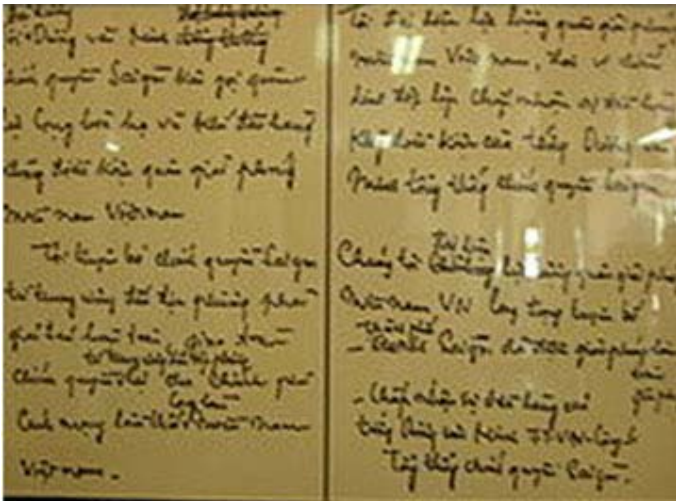 Dương văn Minh tổng thống
chính quyền Saigon kêu gọi quân
lực Cộng hoà hạ vũ khí đầu hàng
không điều kiện quân giải phóng
miền nam Việt nam
Tôi tuyên bố chính quyền Saigon
từ trung ương đến địa phương phải
giải tán hoàn toàn, giao toàn
từ trung ương đến địa phương
chính quyền lại cho chính phủ
Cách mạng lâm thời miền nam
Việt nam.
Tôi đại diện lực lượng quân giải phóng
miền nam Việt nam,
chấp nhận sự đầu hàng
không điều kiện của tướng Dương văn
Minh tổng thống chính quyền Saigon
đại diện
Chúng tôi lực lượng quân giải phóng
miền nam VN long trọng tuyên bố
thành phố
- Saigon đã được giải phóng hoàn
toàn
- Chấp nhận sự đầu hàng của
tướng Dương văn Minh
Tổng thống chính quyền Saigon.